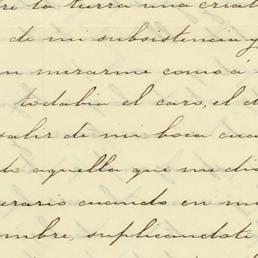 re la tierra una criat
de mi subsistencia y
n mirarme como á
todabia el caso, el d
salir de mi boca cua
do aquella que me di
erario cuando en m
mbre, suplicandoti